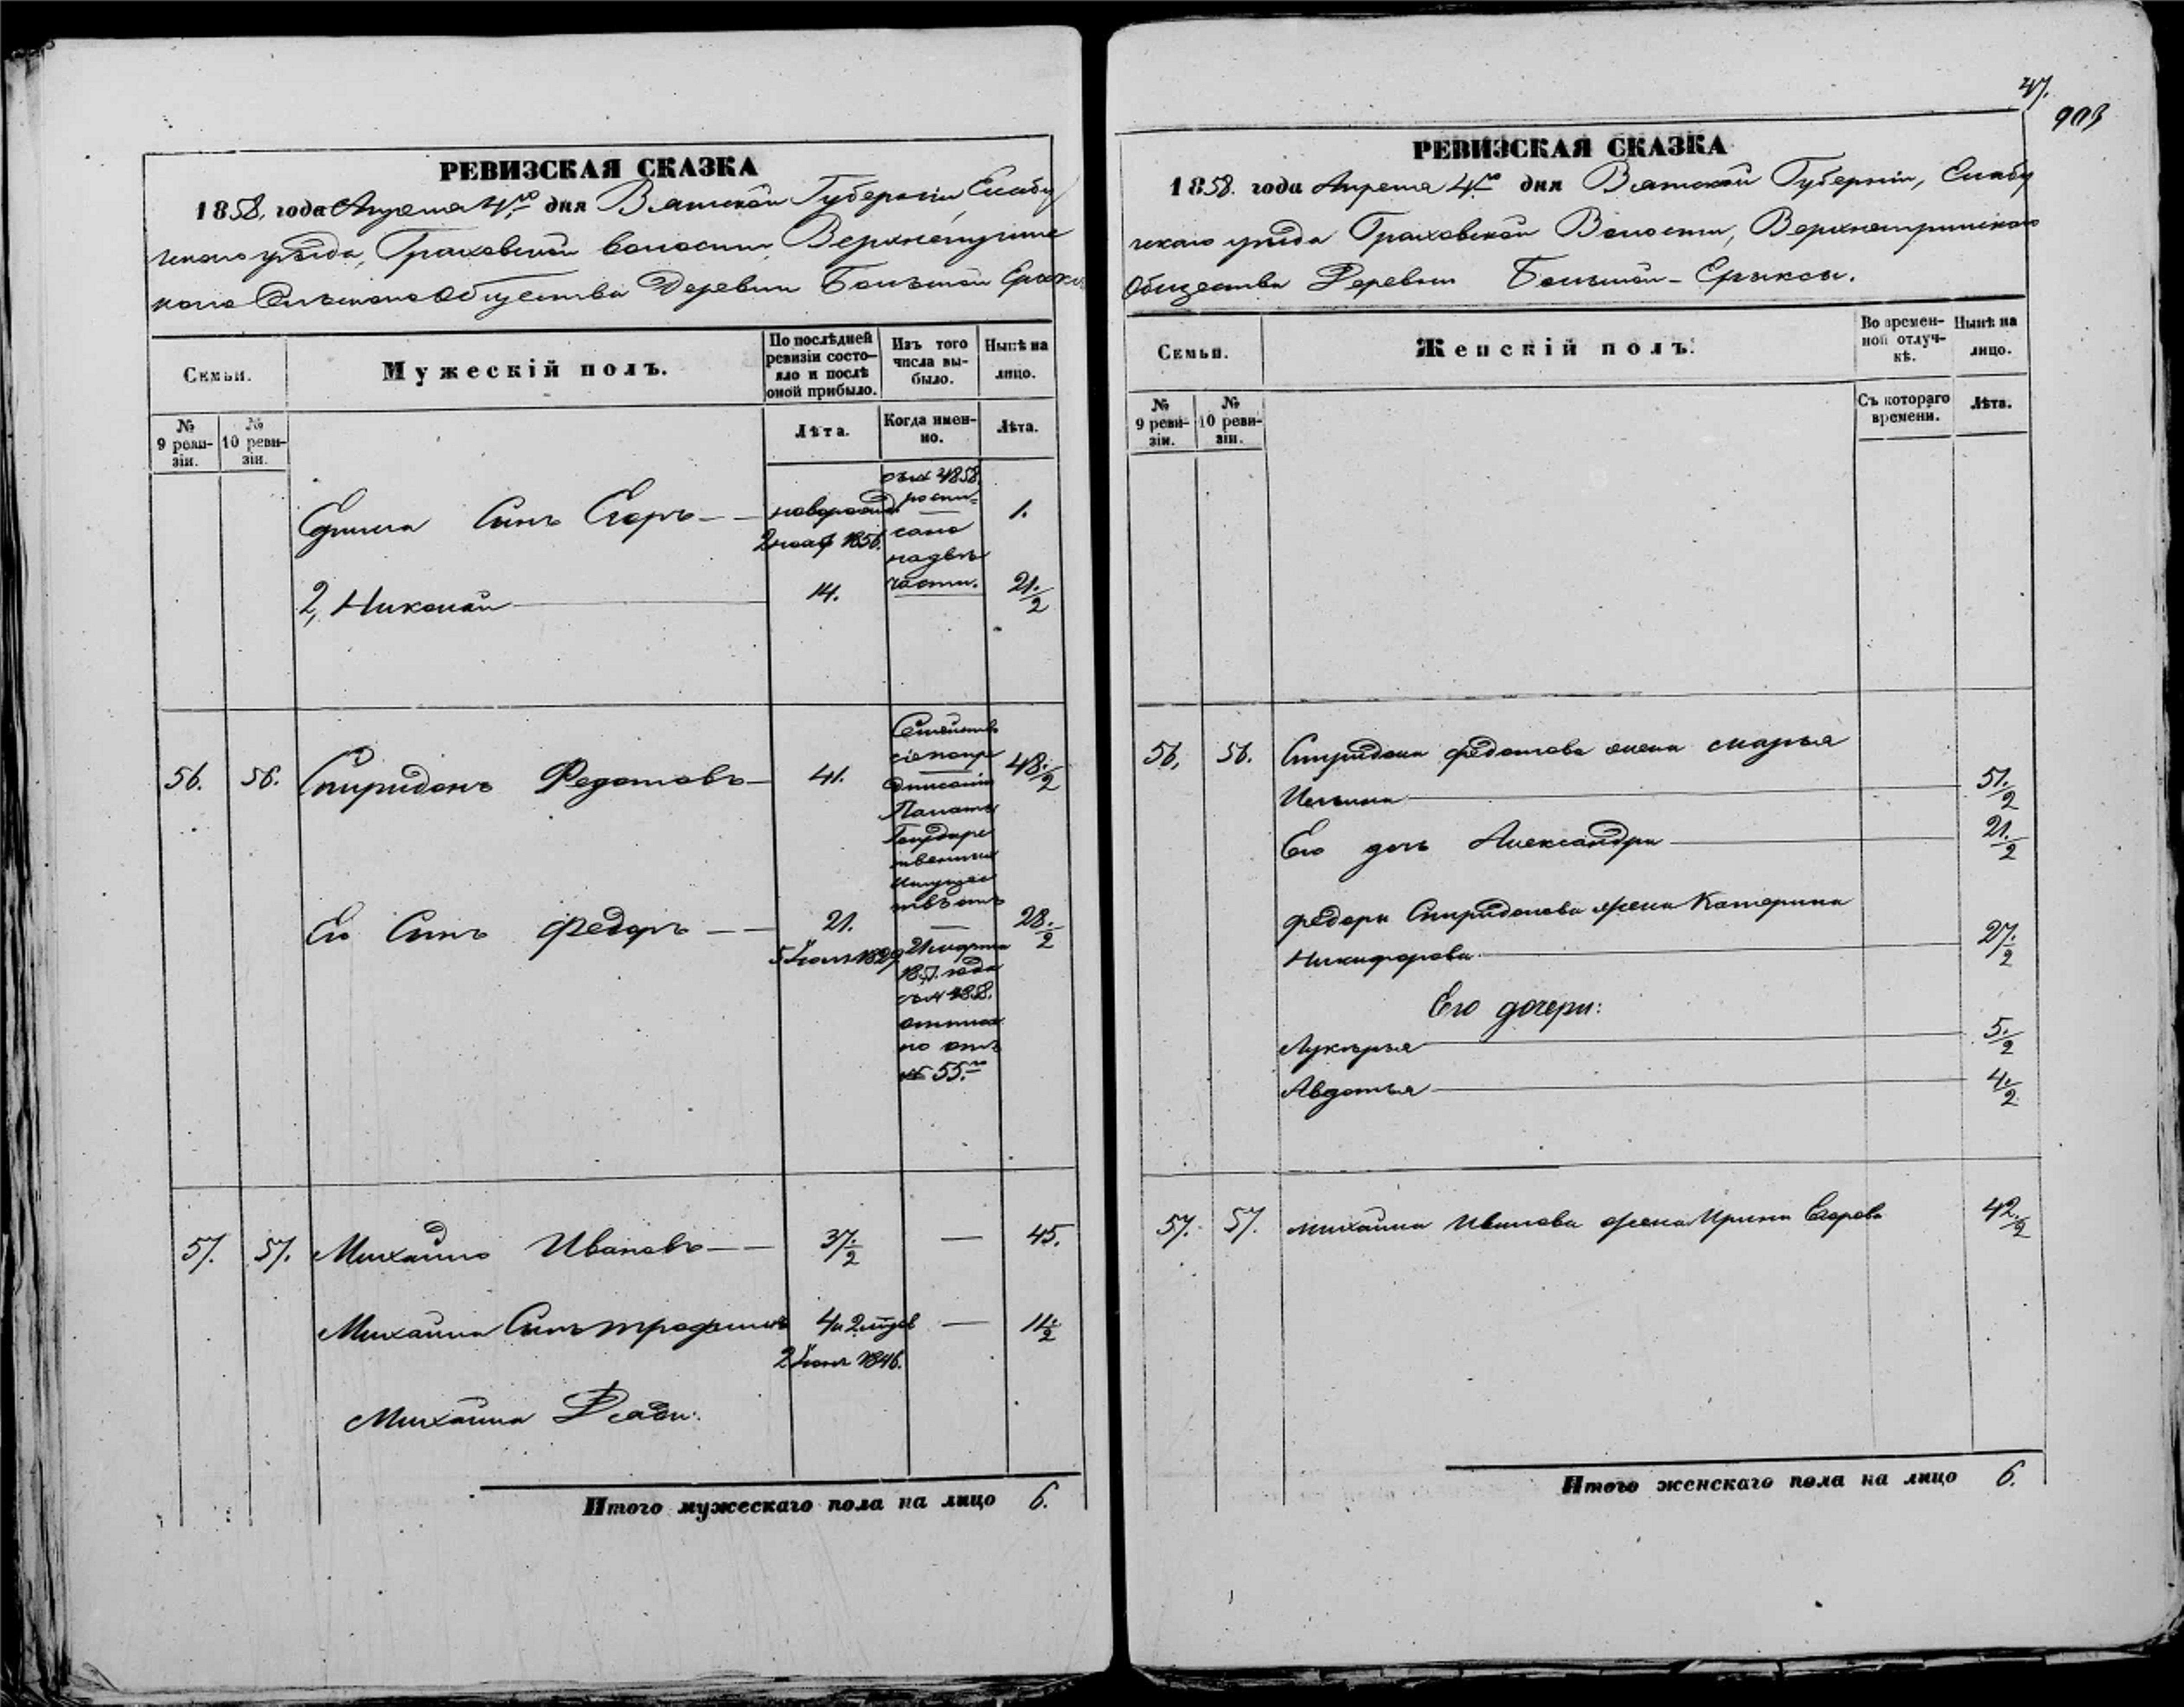 47.
903
РЕВИЗСКАЯ СКАЗКА
1858. года Апреля 4го дня Вятской Губернии Елабу
жскаго уѣзда, Граховской волости,
Сельскаго Общества Деревни Большой Ерыксы
Семьи.
Мужескій полъ.
По послѣдней ревизіи состо-
яло и послѣ
оной прибыло.
Изъ того
числа вы-
было.
Нынѣ на
лицо.
№
9 реви-
зіи.
№
10 реви-
зіи.
Лѣта.
Когда имен-
но.
Лѣта.
Сынъ Егоръ
новорожд
1856.
1858.
1.
2, Николай 14. части. 21.½
56. 56. Спиридонъ Федотовъ 41. 48.½
Семейств
сіе по пре
дписанію
Палаты
Государс
твенныхъ
Имущес
твъ отъ
21 марта
185 . года
за № 4858.
отъ
№ 55.го
Его Сынъ Федоръ 21. 28.½
1829
57. 57. Михайло Ивановъ 37.½ — 45.
Михайла Сынъ Трофимъ 4 и 2 мѣсяц — 11.½
1846.
Михайла
Итого мужескаго пола на лицо 6.
РЕВИЗСКАЯ СКАЗКА
1858. года Апреля 4го дня Вятской Губерніи, Елабу
жскаго уѣзда Граховской Волости,
Общества Деревни Большой-Ерыксы.
Семьи.
Женскій полъ.
Во времен-
ной отлуч-
кѣ.
Нынѣ на
лицо.
№
9 реви-
зіи.
№
10 реви-
зіи.
Съ котораго
времени.
Лѣта.
56, 56. Спиридона Федотова жена Марья
Ильина 51.½
Его дочь Александра 21.½
Федора Спиридонова жена Катерина
Никифорова 27.½
Его дочери:
Лукерья 5.½
Авдотья 4.½
57. 57. Михайла Иванова жена Ирина Егорова 42.½
Итого женскаго пола на лицо 6.